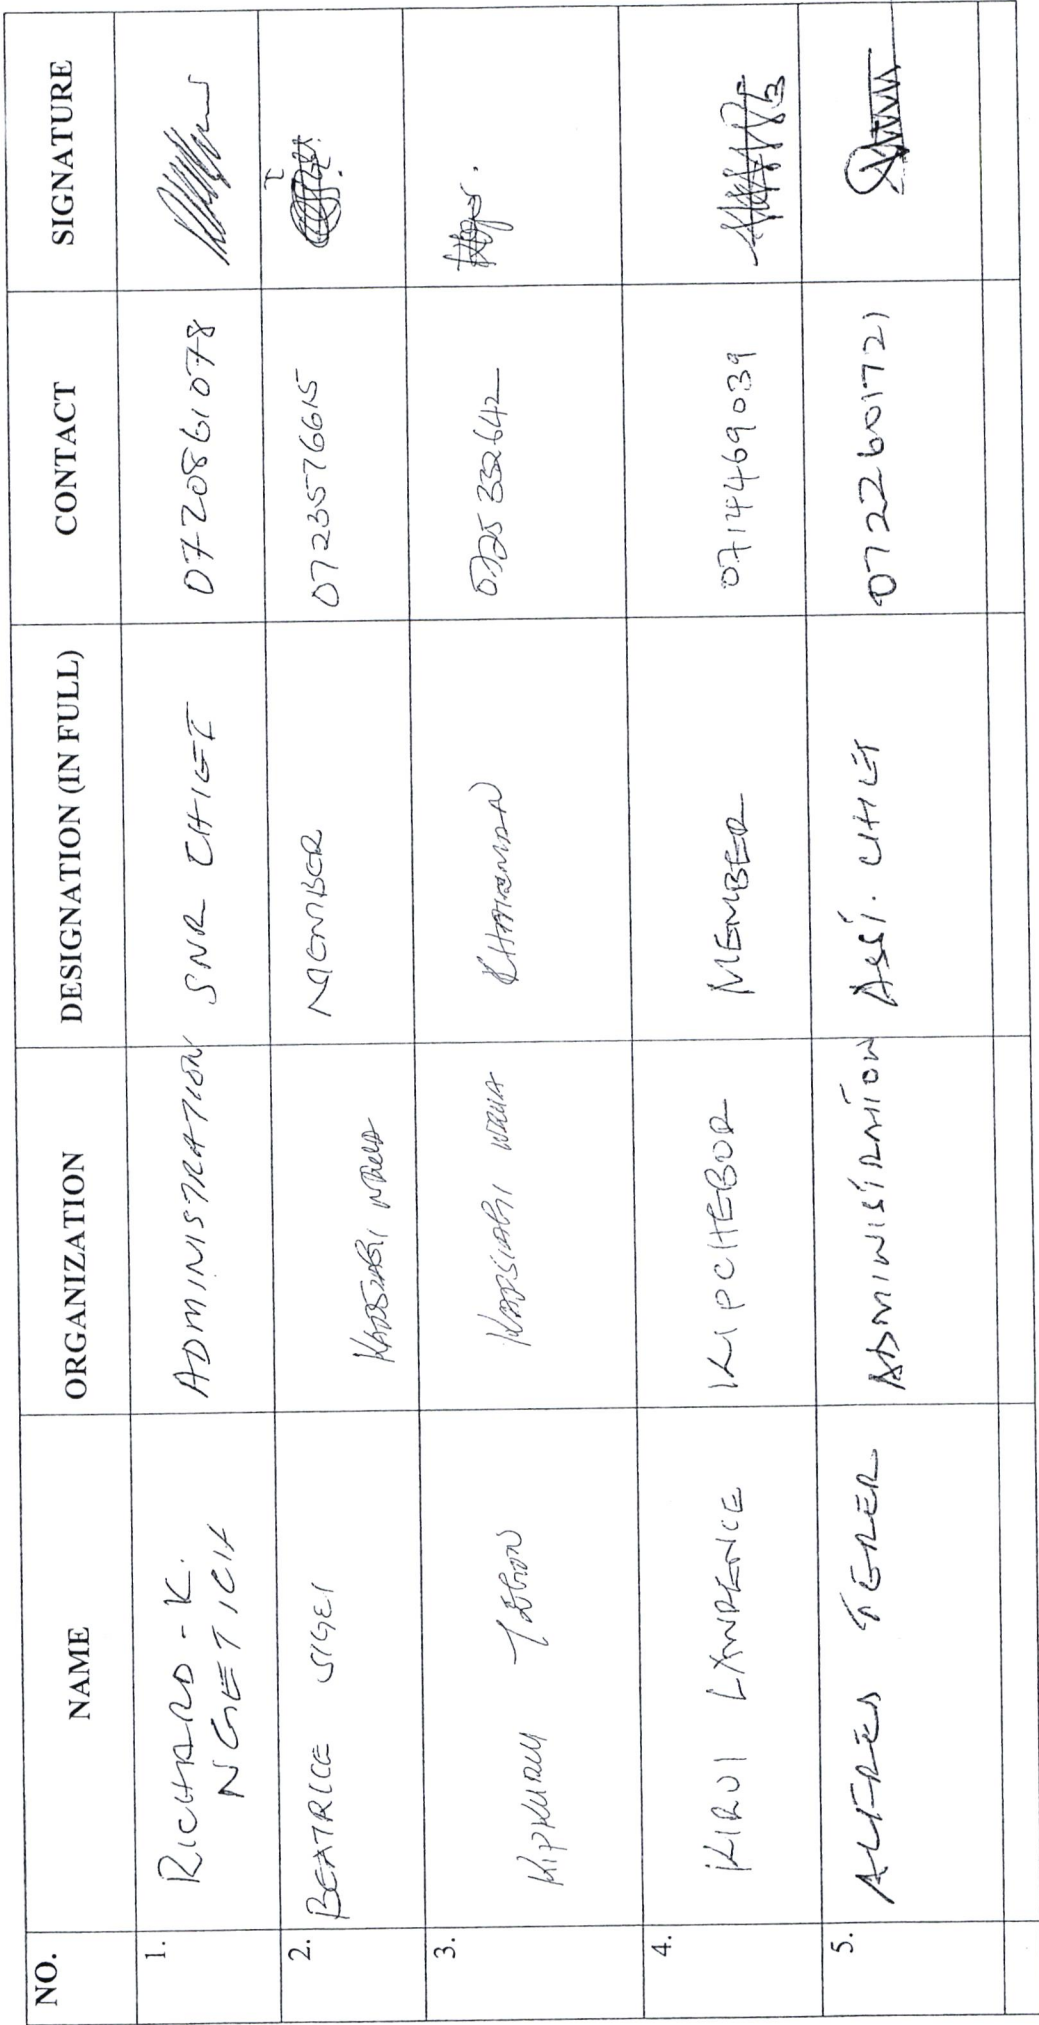 NO. NAME ORGANIZATION DESIGNATION (IN FULL) CONTACT SIGNATURE
1. RICHARD - K. ADMINISTRATION SNR CHIEF 0720861078
NGETICH
2. BEATRICE SIGEI MEMBER 0723576615
3. KIPKURUI CHAIRMAN 0725332642
4. KIRUI LAWRENCE KIPCHEBOR MEMBER 0714469039
5. ALFRED TERER ADMINISTRATION ASSI. CHIEF 0722601721